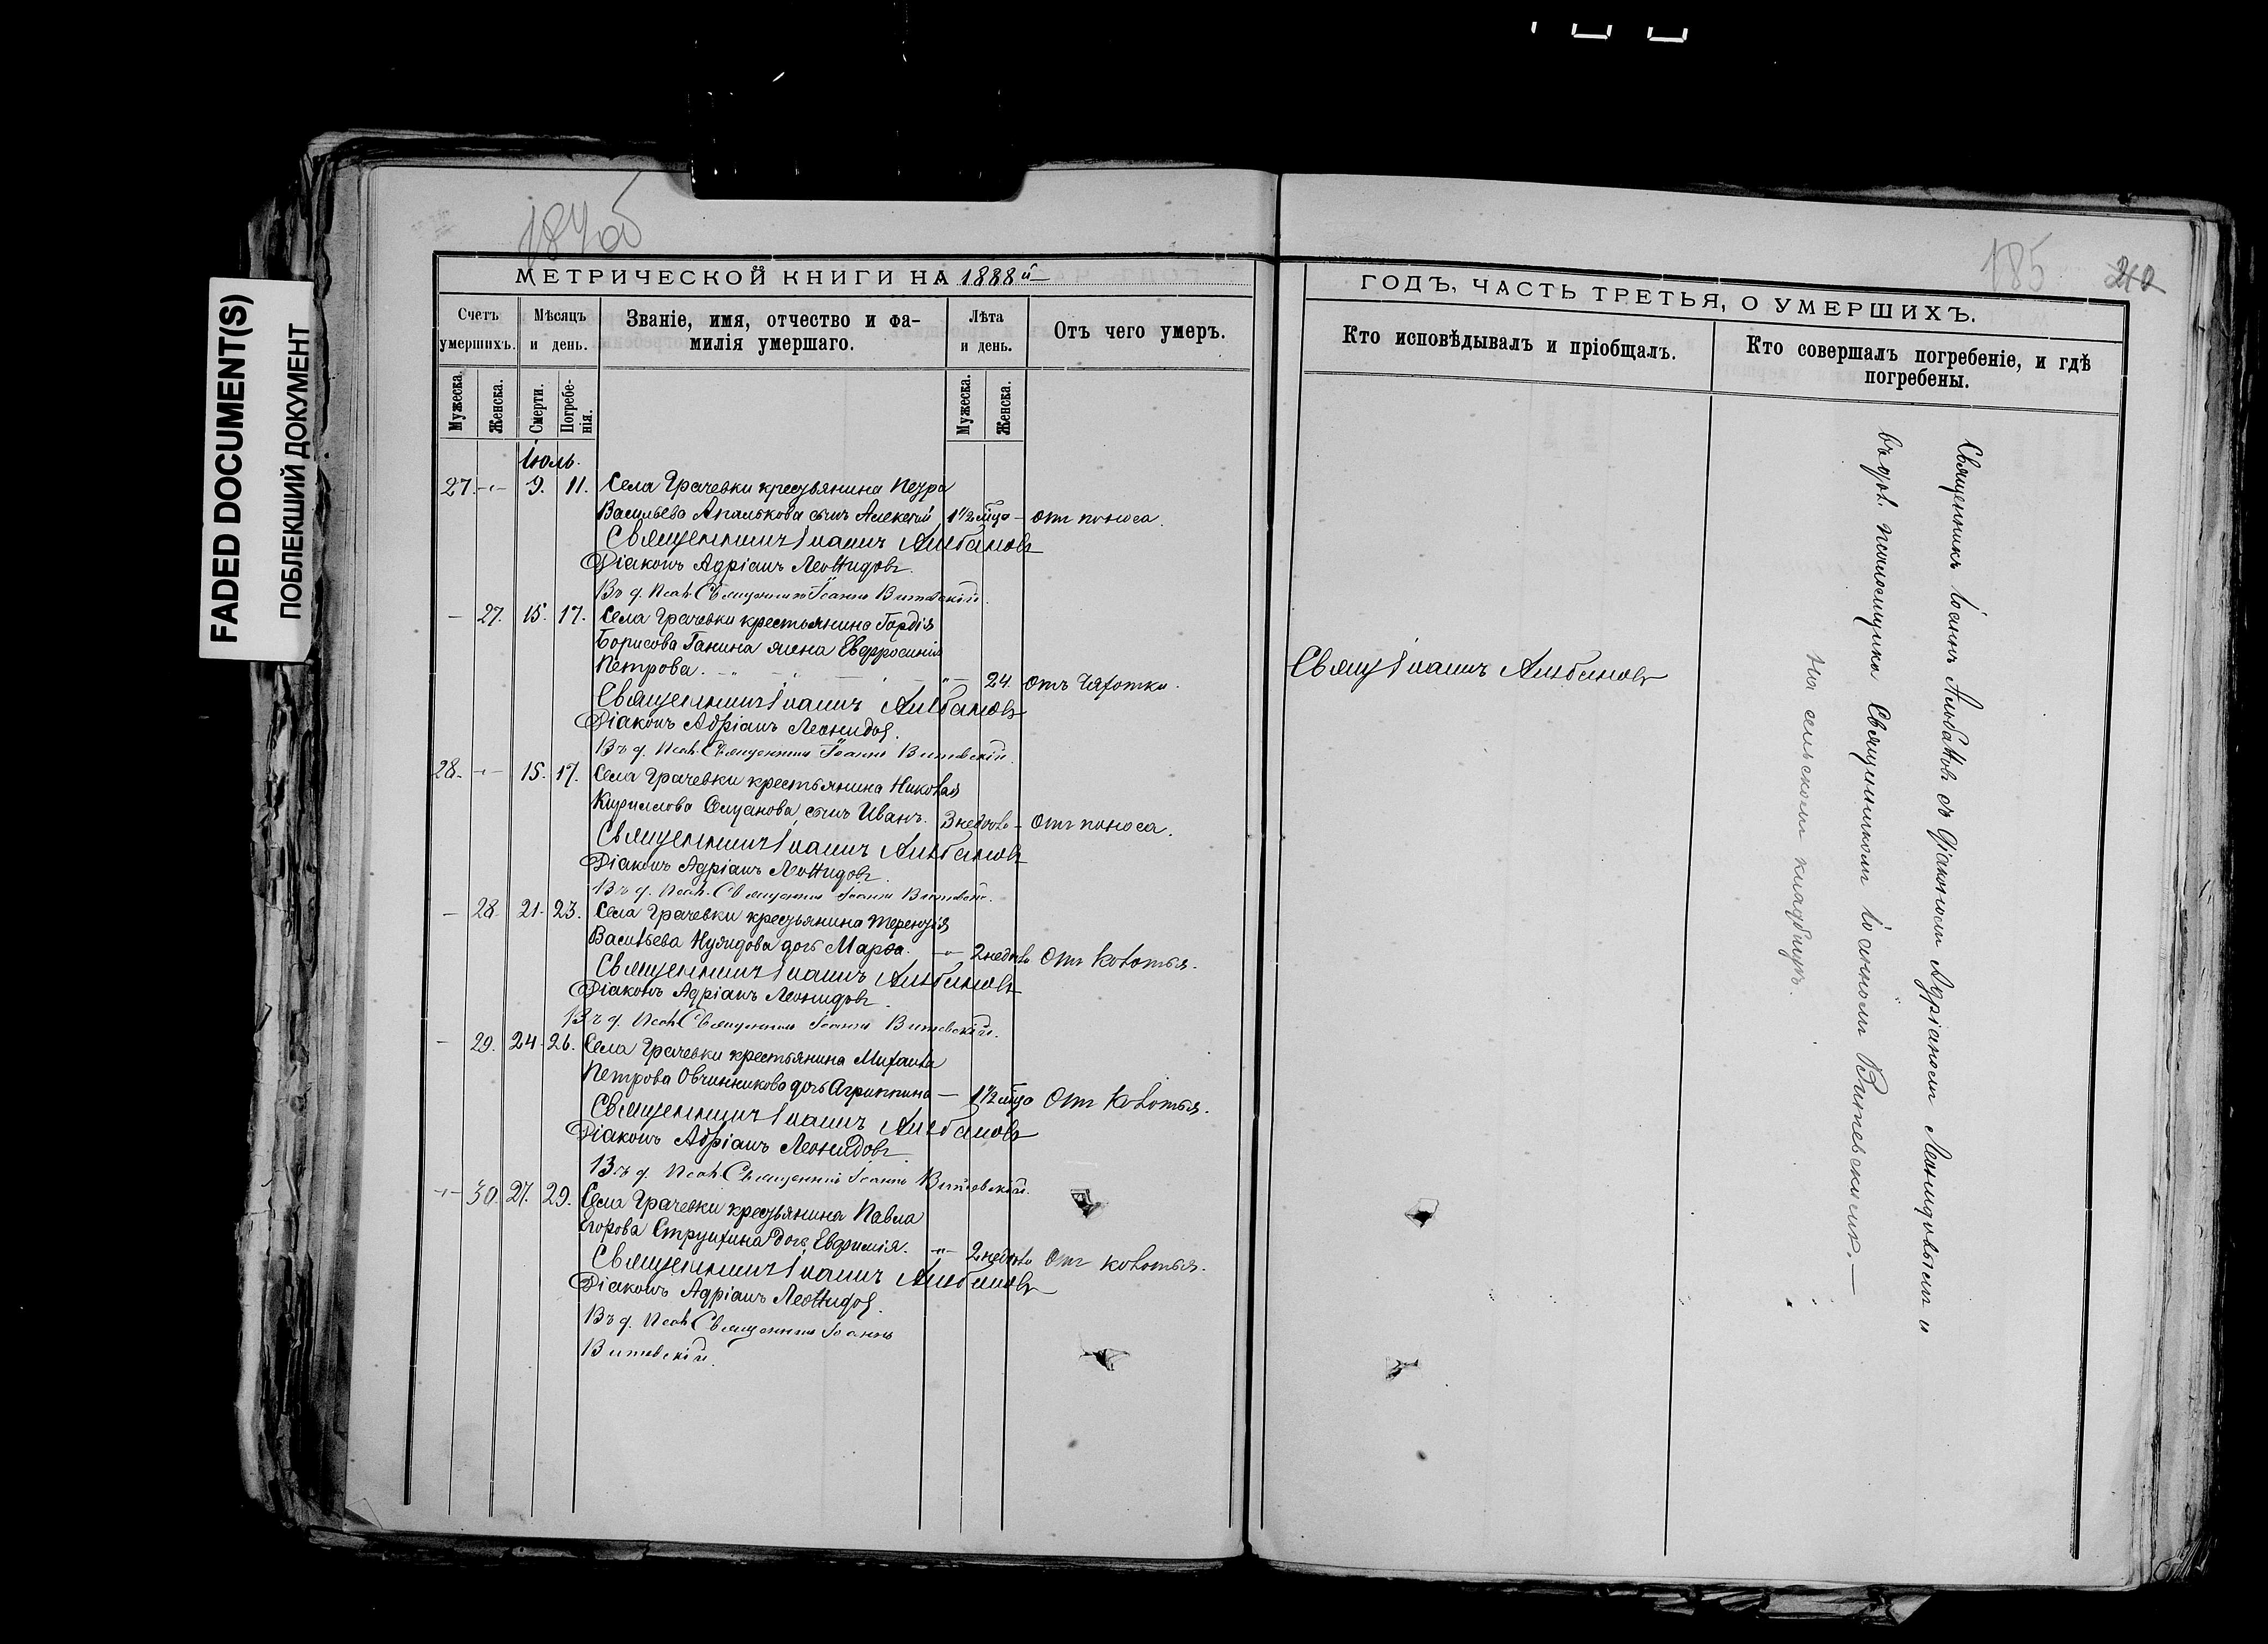 FADED DOCUMENT(S)
ПОБЛЕКШИЙ ДОКУМЕНТ
184об
МЕТРИЧЕСКОЙ КНИГИ НА 1888й
Счетъ умершихъ.
Мѣсяцъ и день.
Званіе, имя, отчество и фа-
милія умершаго.
Лѣта и день.
Отъ чего умеръ.
Мужеска.
Женска.
Смерти.
Погребе-
нія.
Мужеска.
Женска.
Іюль.
27. 9. 11. Села Грачевки крестьянина Петра
Васильева Апалькова сынъ Алексѣй 1 1/2 мца – отъ поноса.
Священникъ Іоаннъ Альбановъ
Діаконъ Адріанъ Леонидовъ.
Въ д. Псал. Священникъ Іоаннъ Витевскій.
– 27. 15. 17. Села Грачевки крестьянина Гордія
Борисова Ганина жена Евфросинія
Петрова. 24. отъ чахотки.
Священникъ Іоаннъ Альбановъ
Діаконъ Адріанъ Леонидов.
Въ д. Псал. Священникъ Іоаннъ Витевскій.
28. 15. 17. Села Грачевки крестьянина Николая
Кириллова сынъ Иванъ. 3 недѣль – Отъ поноса.
Священникъ Іоаннъ Альбановъ
Діаконъ Адріанъ Леонидовъ.
Въ д. Псал. Священникъ Іоаннъ Витевскій.
– 28. 21. 23. Села Грачевки крестьянина Терентія
Васильева дочь Марѳа. 2 недѣль Отъ колотья.
Священникъ Іоаннъ Альбановъ
Діаконъ Адріанъ Леонидовъ.
Въ д. Псал. Священникъ Іоаннъ Витевскій.
– 29. 24. 26. Села Грачевки крестьянина Михаила
Петрова Овчинникова дочь Агриппина – 1 1/2 мца Отъ колотья.
Священникъ Іоаннъ Альбановъ
Діаконъ Адріанъ Леонидовъ.
Въ д. Псал. Священникъ Іоаннъ Витевскій.
30. 27. 29. Села Грачевки крестьянина Павла
Егорова Струихина дочь Евфимія. 2 недѣль Отъ колотья.
Священникъ Іоаннъ Альбановъ
Діаконъ Адріанъ Леонидов.
Въ д. Псал. Священникъ Іоаннъ
Витевскій.
185
ГОДЪ, ЧАСТЬ ТРЕТЬЯ, О УМЕРШИХЪ.
Кто исповѣдывалъ и пріобщалъ.
Кто совершалъ погребеніе, и гдѣ
погребены.
Свящ. Іоаннъ Альбановъ
Священникъ Іоаннъ Альбановъ съ Діакономъ Адріаномъ Леонидовымъ и
въ дол. псаломщика Священникомъ Іоанномъ Витевскимъ.—
На сельскомъ кладбищѣ.